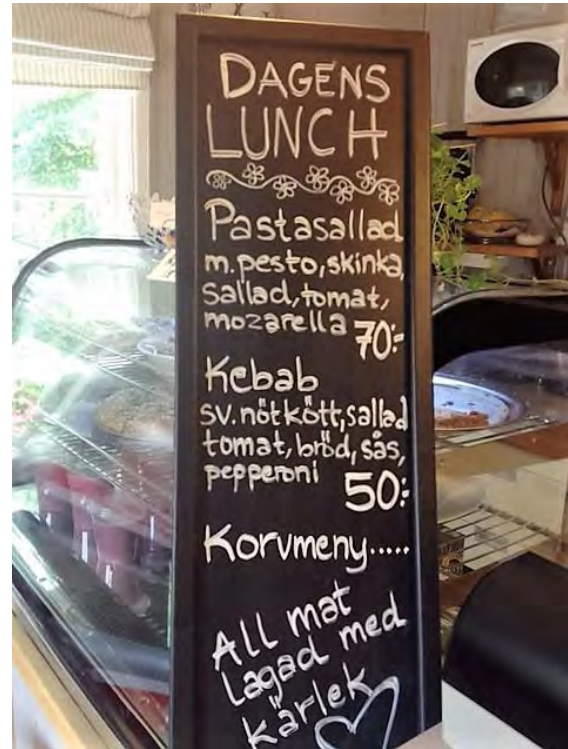 DAGENS
LUNCH
Pastasallad
m.pesto, skinka,
sallad, tomat,
mozarella 70:-
Kebab
sv. nötkött, sallad
tomat, bröd, sås,
pepperoni 50:-
Korvmeny.....
All mat
lagad med
kärlek